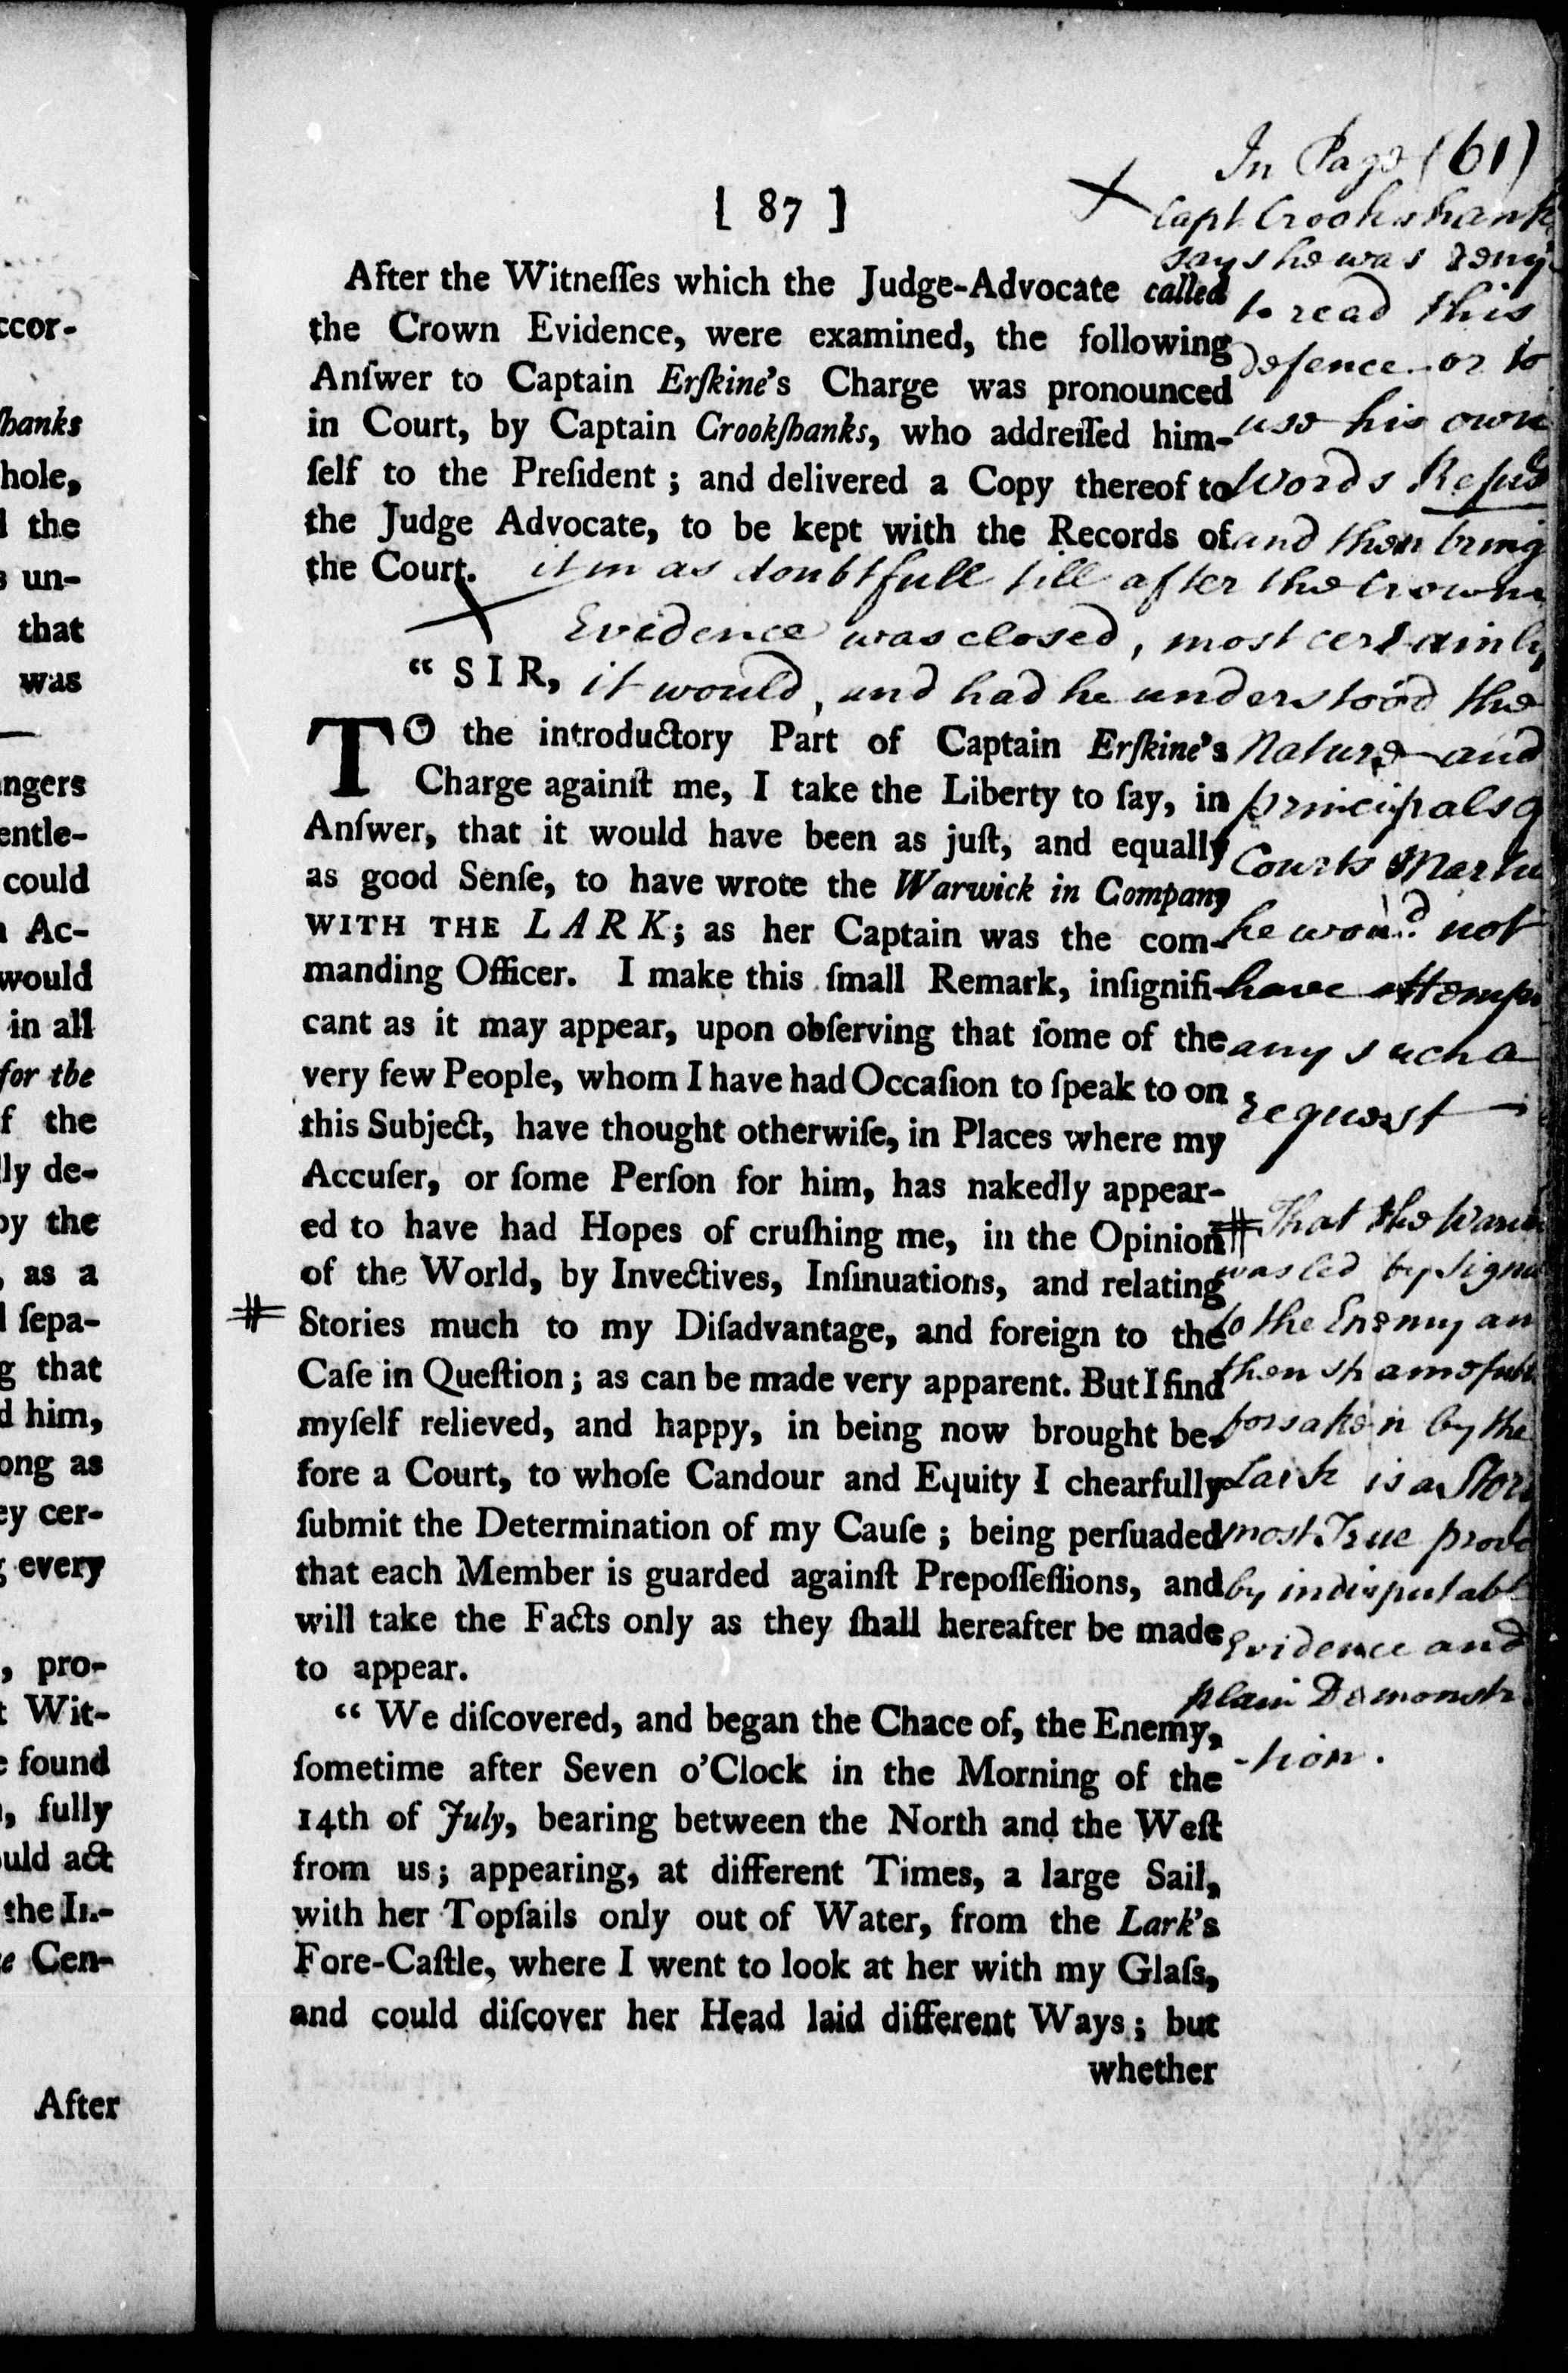 ccor-
ſhanks
hole,
the
un-
that
was
ngers
entle-
could
Ac-
would
in all
for the
f the
lly de-
by the
, as a
ſepa-
g that
d him,
ong as
ey cer-
g every
, pro-
t Wit-
e found
, fully
ould act
the In-
e Cen-
After
[ 87 ]
After the Witneſſes which the Judge-Advocate called
the Crown Evidence, were examined, the following
Anſwer to Captain Erſkine's Charge was pronounced
in Court, by Captain Crookſhanks, who addreſſed him-
ſelf to the Preſident ; and delivered a Copy thereof to
the Judge Advocate, to be kept with the Records of
the Court.
“ S I R,
TO the introductory Part of Captain Erſkine's
Charge againſt me, I take the Liberty to ſay, in
Anſwer, that it would have been as juſt, and equally
as good Senſe, to have wrote the Warwick in Company
WITH THE LARK; as her Captain was the com-
manding Officer. I make this ſmall Remark, inſignifi-
cant as it may appear, upon obſerving that ſome of the
very few People, whom I have had Occaſion to ſpeak to on
this Subject, have thought otherwiſe, in Places where my
Accuſer, or ſome Perſon for him, has nakedly appear-
ed to have had Hopes of cruſhing me, in the Opinion
of the World, by Invectives, Inſinuations, and relating
# Stories much to my Diſadvantage, and foreign to the
Caſe in Queſtion ; as can be made very apparent. But I find
myſelf relieved, and happy, in being now brought be-
fore a Court, to whoſe Candour and Equity I chearfully
ſubmit the Determination of my Cauſe ; being perſuaded
that each Member is guarded againſt Prepoſſeſſions, and
will take the Facts only as they ſhall hereafter be made
to appear.
“ We diſcovered, and began the Chace of, the Enemy,
ſometime after Seven o'Clock in the Morning of the
14th of July, bearing between the North and the Weſt
from us; appearing, at different Times, a large Sail,
with her Topſails only out of Water, from the Lark's
Fore-Caſtle, where I went to look at her with my Glaſs,
and could diſcover her Head laid different Ways; but
whether
In Page (61)
X Capt Crookshank
says he was deny
to read this
Defence or to
use his own
Words Refus
and then bring
it in as doubtfull till after the Crown
X
Evidence was closed, most certainly
it would, and had he understood the
Nature and
principals o
Courts Martia
he wou'd not
have attemp
any such a
request
# That the Warwi
was led by Signa
to the Enemy an
then shamefull
forsaken by the
Lark is a Stor
most True prov
by indisputabl
Evidence and
plain Demonstr
-tion.